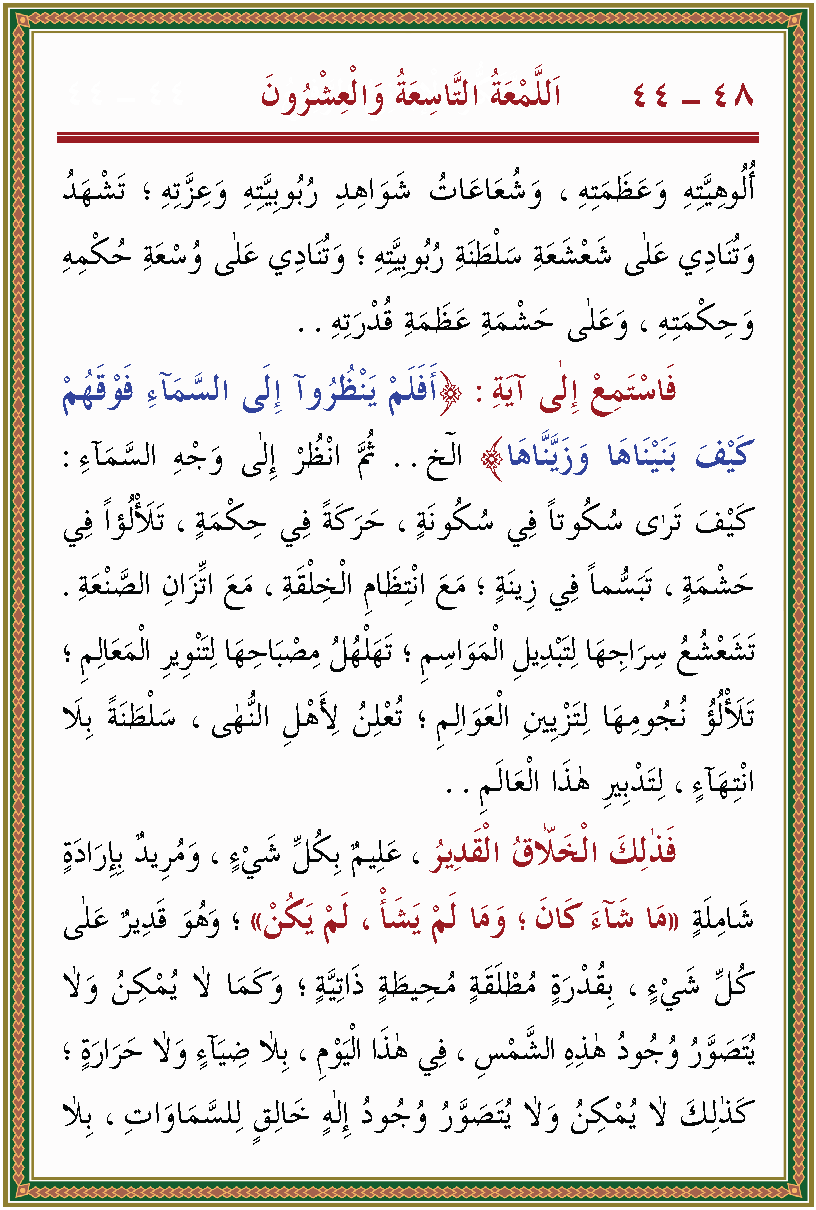 ٤٨ – ٤٤ اَللَّمْعَةُ التَّاسِعَةُ وَالْعِشْرُونَ
أُلُوهِيَّتِهِ وَعَظَمَتِهِ ، وَشُعَاعَاتُ شَوَاهِدِ رُبُوبِيَّتِهِ وَعِزَّتِهِ ؛ تَشْهَدُ
وَتُنَادِي عَلٰى شَعْشَعَةِ سَلْطَنَةِ رُبُوبِيَّتِهِ ؛ وَتُنَادِي عَلٰى وُسْعَةِ حُكْمِهِ
وَحِكْمَتِهِ ، وَعَلٰى حَشْمَةِ عَظَمَةِ قُدْرَتِهِ . .
فَاسْتَمِعْ إِلٰى آيَةِ : ﴿أَفَلَمْ يَنْظُرُوآ إِلَى السَّمَآءِ فَوْقَهُمْ
كَيْفَ بَنَيْنَاهَا وَزَيَّنَّاهَا﴾ الٓخ . . ثُمَّ انْظُرْ إِلٰى وَجْهِ السَّمَآءِ :
كَيْفَ تَرٰى سُكُوتاً فِي سُكُونَةٍ ، حَرَكَةً فِي حِكْمَةٍ ، تَلَأْلُؤاً فِي
حَشْمَةٍ ، تَبَسُّماً فِي زِينَةٍ ؛ مَعَ انْتِظَامِ الْخِلْقَةِ ، مَعَ اتِّزَانِ الصَّنْعَةِ .
تَشَعْشُعُ سِرَاجِهَا لِتَبْدِيلِ الْمَوَاسِمِ ؛ تَهَلْهُلُ مِصْبَاحِهَا لِتَنْوِيرِ الْمَعَالِمِ ؛
تَلَأْلُؤُ نُجُومِهَا لِتَزْيِينِ الْعَوَالِمِ ؛ تُعْلِنُ لِأَهْلِ النُّهٰى ، سَلْطَنَةً بِلَا
انْتِهَآءٍ ، لِتَدْبِيرِ هٰذَا الْعَالَمِ . .
فَذٰلِكَ الْخَلَّاقُ الْقَدِيرُ ، عَلِيمٌ بِكُلِّ شَيْءٍ ، وَمُرِيدٌ بِإِرَادَةٍ
شَامِلَةٍ «مَا شَآءَ كَانَ ؛ وَمَا لَمْ يَشَأْ ، لَمْ يَكُنْ» ؛ وَهُوَ قَدِيرٌ عَلٰى
كُلِّ شَيْءٍ ، بِقُدْرَةٍ مُطْلَقَةٍ مُحِيطَةٍ ذَاتِيَّةٍ ؛ وَكَمَا لَا يُمْكِنُ وَلَا
يُتَصَوَّرُ وُجُودُ هٰذِهِ الشَّمْسِ ، فِي هٰذَا الْيَوْمِ ، بِلَا ضِيَآءٍ وَلَا حَرَارَةٍ ؛
كَذٰلِكَ لَا يُمْكِنُ وَلَا يُتَصَوَّرُ وُجُودُ إِلٰهٍ خَالِقٍ لِلسَّمَاوَاتِ ، بِلَا